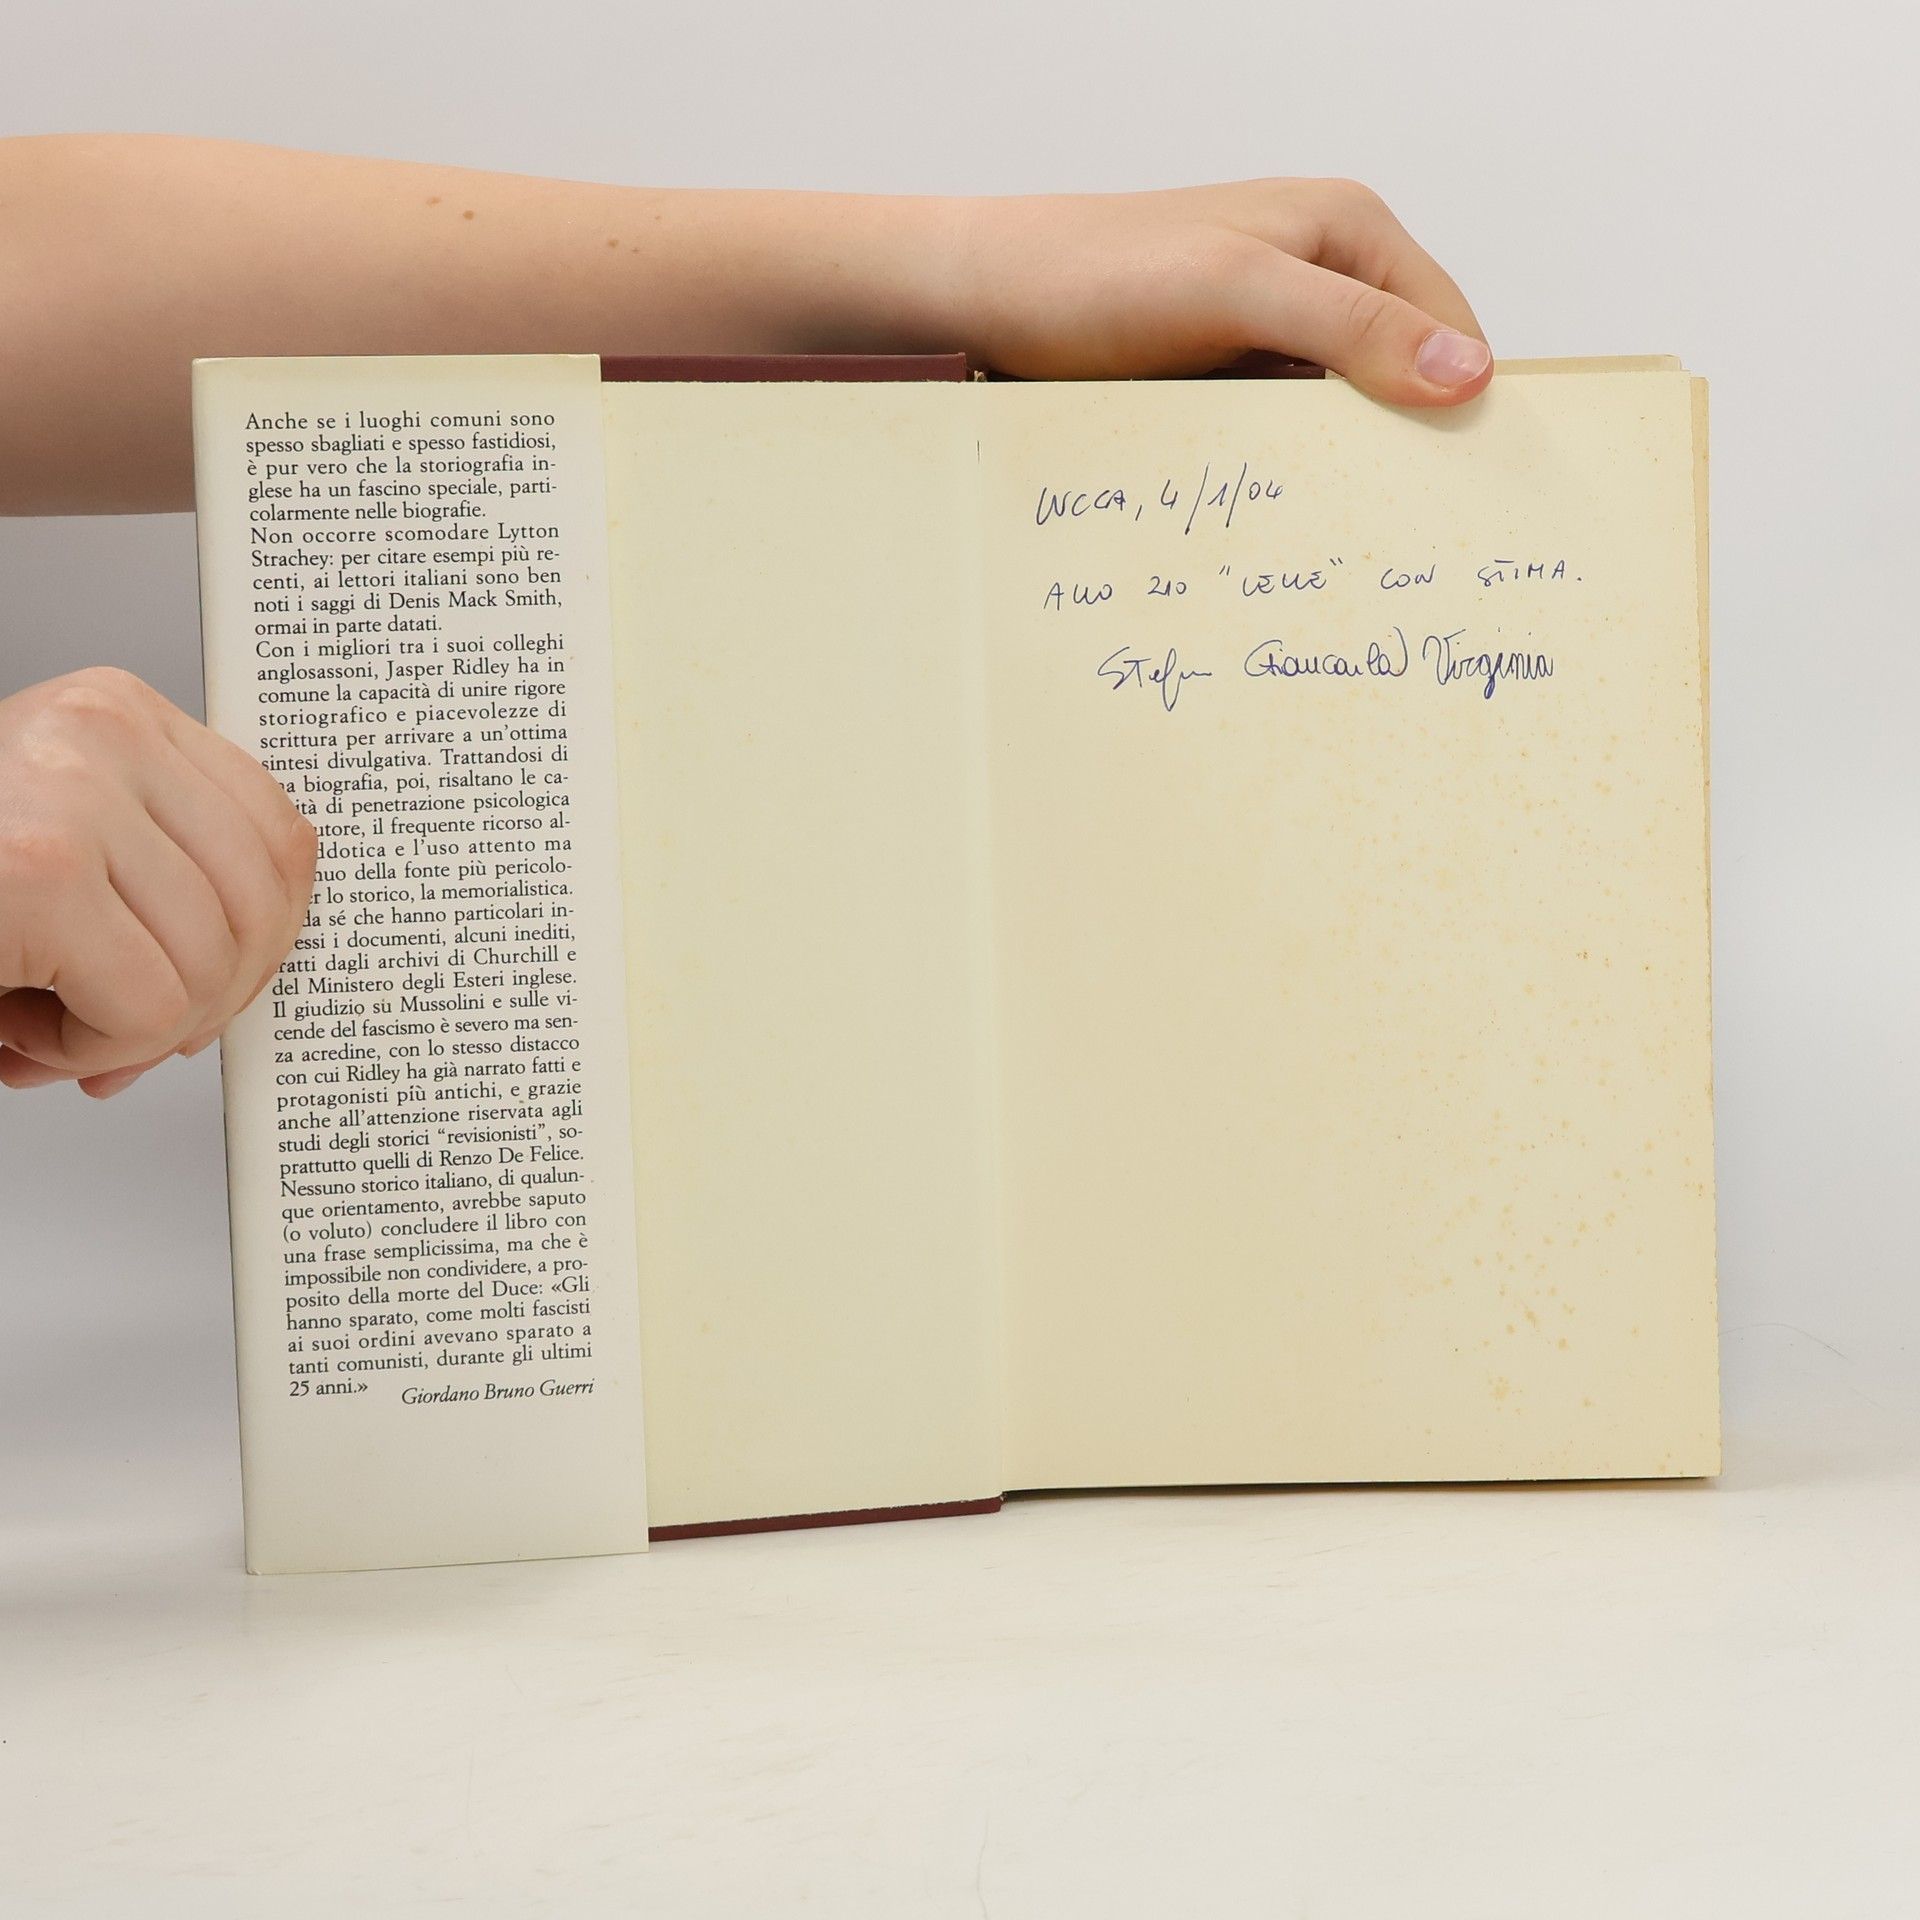 Anche se i luoghi comuni sono
spesso sbagliati e spesso fastidiosi,
è pur vero che la storiografia in-
glese ha un fascino speciale, parti-
colarmente nelle biografie.
Non occorre scomodare Lytton
Strachey: per citare esempi più re-
centi, ai lettori italiani sono ben
noti i saggi di Denis Mack Smith,
ormai in parte datati.
Con i migliori tra i suoi colleghi
anglosassoni, Jasper Ridley ha in
comune la capacità di unire rigore
storiografico e piacevolezze di
scrittura per arrivare a un'ottima
sintesi divulgativa. Trattandosi di
biografia, poi, risaltano le ca-
di penetrazione psicologica
il frequente ricorso al-
e l'uso attento ma
della fonte più pericolo-
lo storico, la memorialistica.
da sé che hanno particolari in-
i documenti, alcuni inediti,
tratti dagli archivi di Churchill e
del Ministero degli Esteri inglese.
Il giudizio su Mussolini e sulle vi-
cende del fascismo è severo ma sen-
za acredine, con lo stesso distacco
con cui Ridley ha già narrato fatti e
protagonisti più antichi, e grazie
anche all'attenzione riservata agli
studi degli storici “revisionisti”, so-
prattutto quelli di Renzo De Felice.
Nessuno storico italiano, di qualun-
que orientamento, avrebbe saputo
(o voluto) concludere il libro con
una frase semplicissima, ma che è
impossibile non condividere, a pro-
posito della morte del Duce: «Gli
hanno sparato, come molti fascisti
ai suoi ordini avevano sparato a
tanti comunisti, durante gli ultimi
25 anni.»
Giordano Bruno Guerri
LUCCA, 4/1/04
ALLO ZIO "LELLE" CON STIMA.
Giancarla Virginia